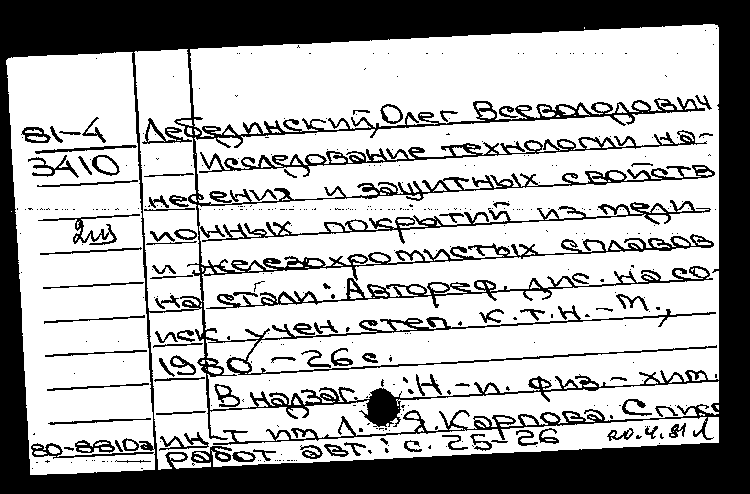 81-4
3410
2из
80-8810а
Лебединский, Олег Всеволодович.
Исследование технологии на-
несения и защитных свойств
ионных покрытий из меди
и железохромистых сплавов
на стали: Автореф. дис. на со-
иск. учен. степ. к.т.н. - М.,
1980. - 26 с.
В надзаг.: Н.-и. физ.-хим.
ин-т им. Л. Я. Карпова. Список
работ авт.: с. 25-26
20.4.81 Л